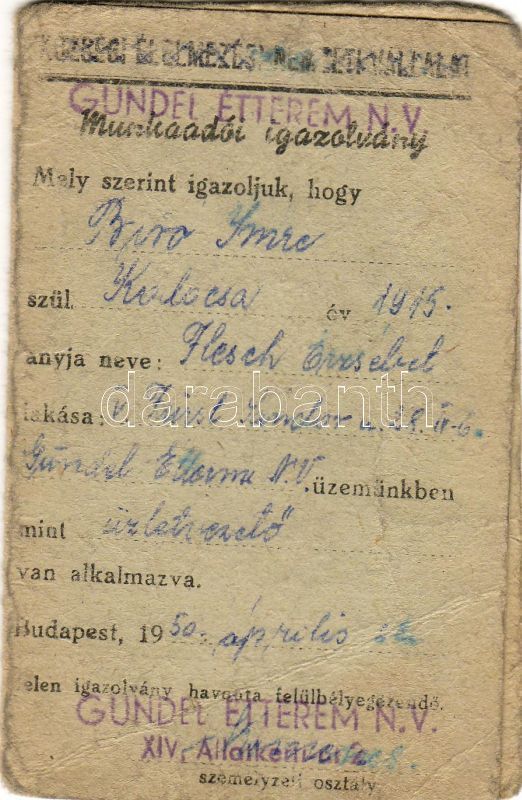 GUNDEL ÉTTEREM N.V.
Munkaadói igazolvány
Mely szerint igazoljuk, hogy
Biró Imre
szül. Kalocsa év 1915.
anyja neve: Flesch Erzsébet
lakása: V. Fürst Sándor u. 28. II. 6.
Gundel Étterem N.V. üzemünkben
mint üzletvezető
van alkalmazva.
Budapest, 1950. április
elen igazolvány havonta felülbélyegezendő.
GUNDEL ÉTTEREM N.V.
XIV. Állatkerti
személyzeti osztály
darabanth.com